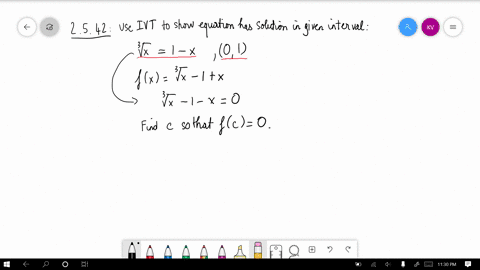 2.5.42: Use IVT to show equation has solution in given interval:
∛x = 1 - x , (0,1)
f(x) = ∛x - 1 + x
∛x - 1 - x = 0
Find c so that f(c) = 0.
KY
11:30 PM